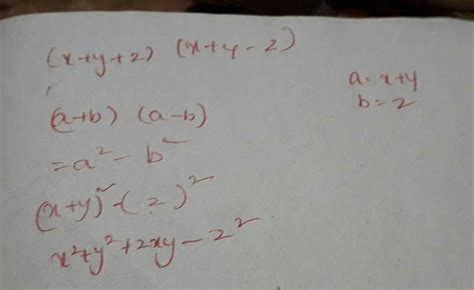 (x+y+2) (x+y-2)
a = x+y
b = 2
(a+b) (a-b)
= a² - b²
(x+y)² - (2)²
x²+y²+2xy - 2²